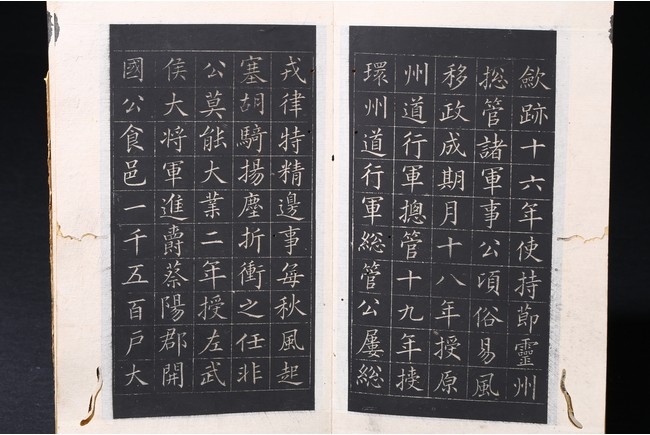 歛跡十六年使持節靈州
揔管諸軍事公頃俗易風
移政成期月十八年授原
州道行軍摠管十九年授
環州道行軍総管公屢総
戎律特精邊事每秋風起
塞胡騎揚塵折衝之任非
公莫能大業二年授左武
侯大将軍進爵蔡陽郡開
國公食邑一千五百戶大